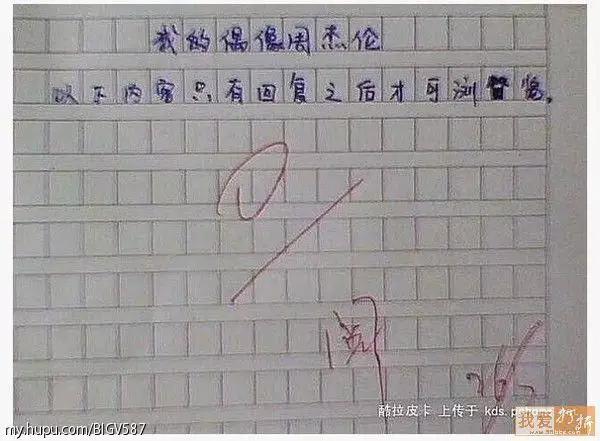 我的偶像周杰伦
以下内容只有回复之后才可浏览。
阅
酷拉皮卡 上传于 kds.pchome
my.hupu.com/BIGV587
我爱打折